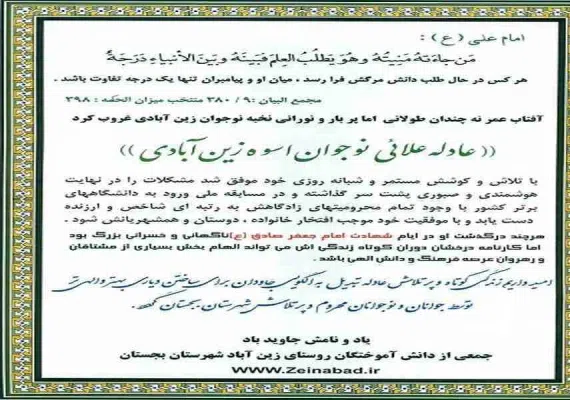 امام علی (ع) :
مَن جاءَتهُ مَنِیَّتُهُ وهُوَ یَطلُبُ العِلمَ فَبَینَهُ وبَینَ الأنبیاءِ دَرَجَةٌ
هر کس در حال طلب دانش مرگش فرا رسد ، میان او و پیامبران تنها یک درجه تفاوت باشد .
مجمع البیان :۹ / ۳۸۰ منتخب میزان الحکمه : ۳۹۸
آفتاب عمر نه چندان طولانی اما پر بار و نورانی نخبه نوجوان زین آبادی غروب کرد
(( عادله علائی نوجوان اسوه زین آبادی ))
با تلاش و کوشش مستمر و شبانه روزی خود موفق شد مشکلات را در نهایت
هوشمندی و صبوری پشت سر گذاشته و در مسابقه ملی ورود به دانشگاههای
برتر کشور با وجود تمام محرومیتهای زادگاهش به رتبه ای شاخص و ارزنده
دست یابد و با موفقیت خود موجب افتخار خانواده ، دوستان و همشهریانش شود .
هرچند درگذشت او در ایام شهادت امام جعفر صادق (ع)ناگهانی و خسرانی بزرگ بود
اما کارنامه درخشان دوران کوتاه زندگی اش می تواند الهام بخش بسیاری از مشتاقان
و رهروان عرصه فرهنگ و دانش الهی باشد .
امید واریم زندگی کوتاه و پر تلاش عادله تبدیل به الگویی جاودان برای ساختن دنیای بهتر و الهی تر
توسط جوانان و نوجوانان محروم و پر تلاش شهرستان بجستان گردد.
یاد و نامش جاوید باد
جمعی از دانش آموختگان روستای زین آباد شهرستان بجستان
WWW.Zeinabad.ir